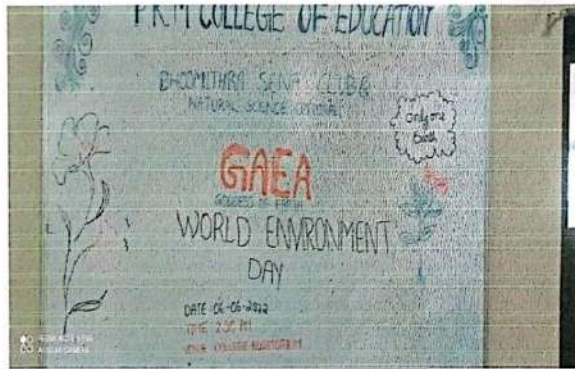 PKM COLLEGE OF EDUCATION
BHOOMITHRA SENA CLUB &
NATURAL SCIENCE OPTIONAL
only one
Earth
GAEA
GODDESS OF EARTH
WORLD ENVIRONMENT
DAY
DATE :06-06-2022
TIME 2:30 PM
COLLEGE AUDITORIUM